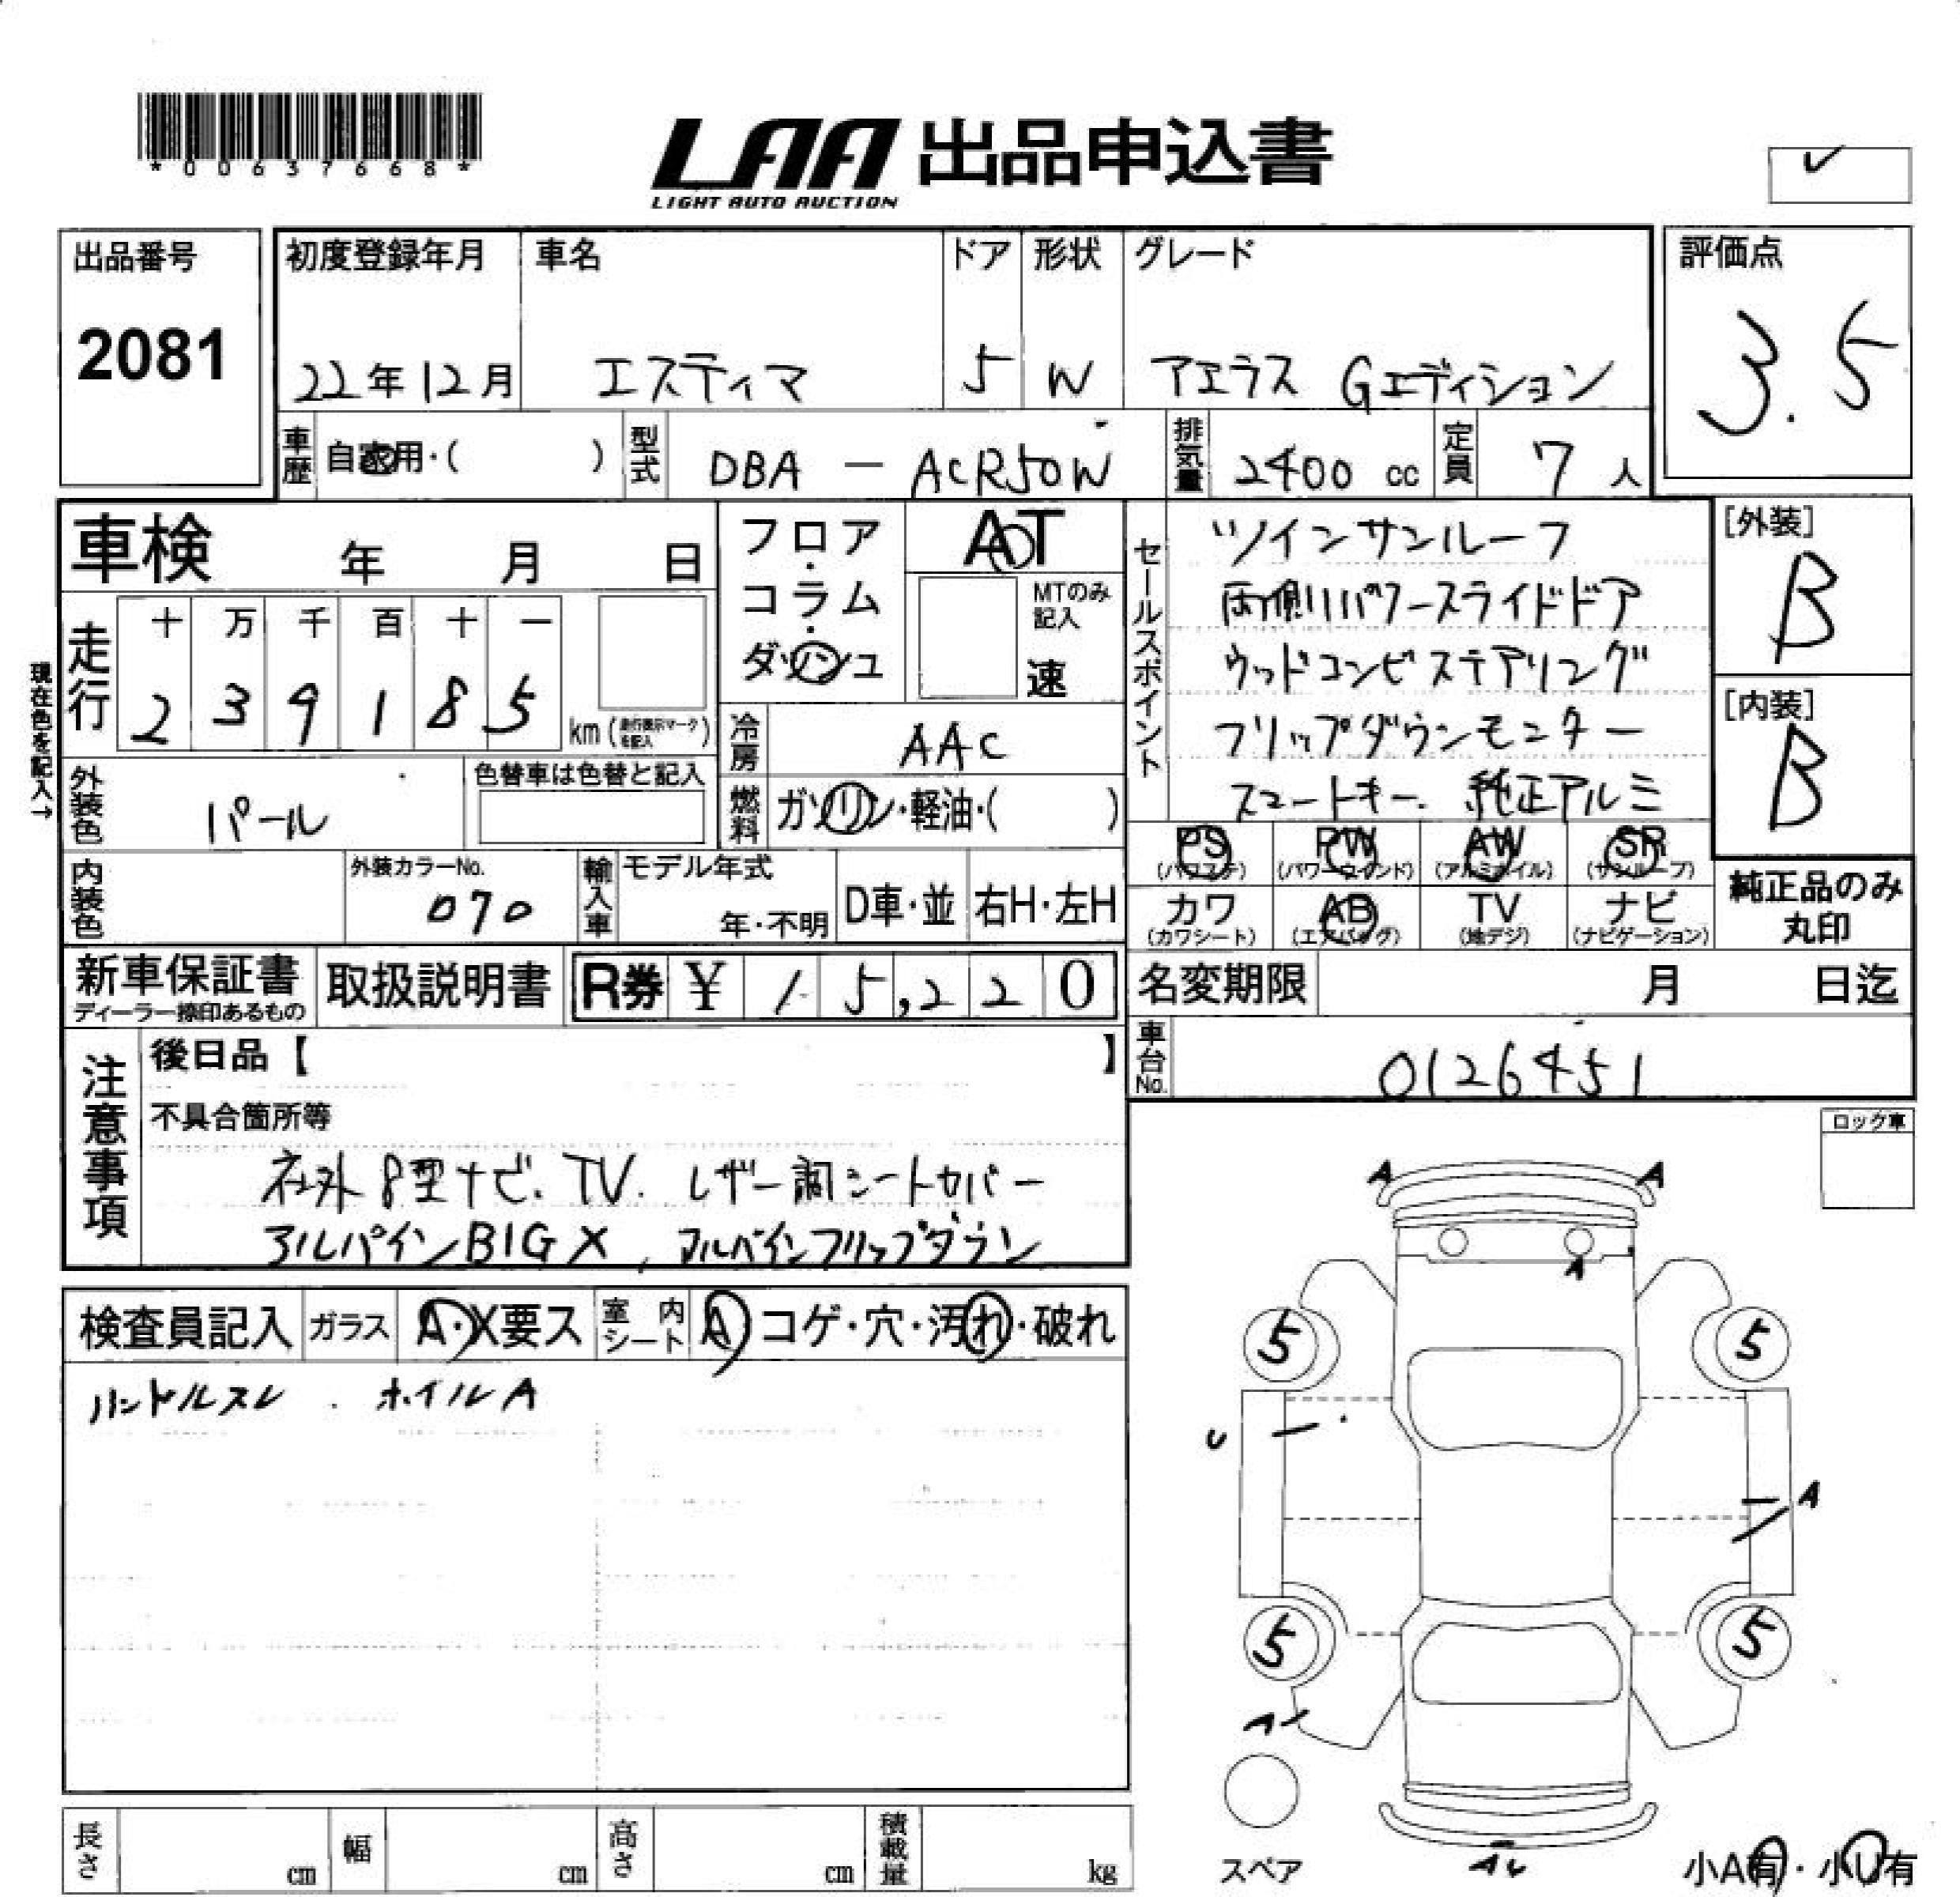 *00637668*
LAA 出品申込書
LIGHT AUTO AUCTION
出品番号
2081
初度登録年月
22年12月
車名
エスティマ
ドア
5
形状
W
グレード
アエラス Gエディション
評価点
3.5
車歴
自家用・( )
型式
DBA - ACR50W
排気量
2400 cc
定員
7 人
車検 年 月 日
フロア・コラム・ダッシュ
AT
MTのみ記入
速
セールスポイント
ツインサンルーフ
両側パワースライドドア
ウッドコンビステアリング
フリップダウンモニター
スマートキー. 純正アルミ
[外装]
B
[内装]
B
現在色を記入→
走行
十 万 千 百 十 一
2 3 9 1 8 5
km (走行表示マークを記入)
冷房
AAC
外装色
パール
色替車は色替と記入
燃料
ガソリン・軽油・( )
PS (パワステ)
PW (パワーウインド)
AW (アルミホイル)
SR (サンルーフ)
カワ (カワシート)
AB (エアバッグ)
TV (地デジ)
ナビ (ナビゲーション)
純正品のみ丸印
内装色
外装カラーNo.
070
輸入車
モデル年式
年・不明
D車・並
右H・左H
新車保証書
ディーラー捺印あるもの
取扱説明書
R券 ¥ 15,220
名変期限 月 日迄
車台No.
0126451
注意事項
後日品【 】
不具合箇所等
社外8型ナビ. TV. レザー調シートカバー
アルパインBIG X, アルパインフリップダウン
ロック車
検査員記入
ガラス
A・X要ス
室内シート
A コゲ・穴・汚れ・破れ
ハンドルスレ . ホイルA
A A
A
5 5
U
A
5 5
A
スペア
AU
小A有・小U有
長さ cm
幅 cm
高さ cm
積載量 kg